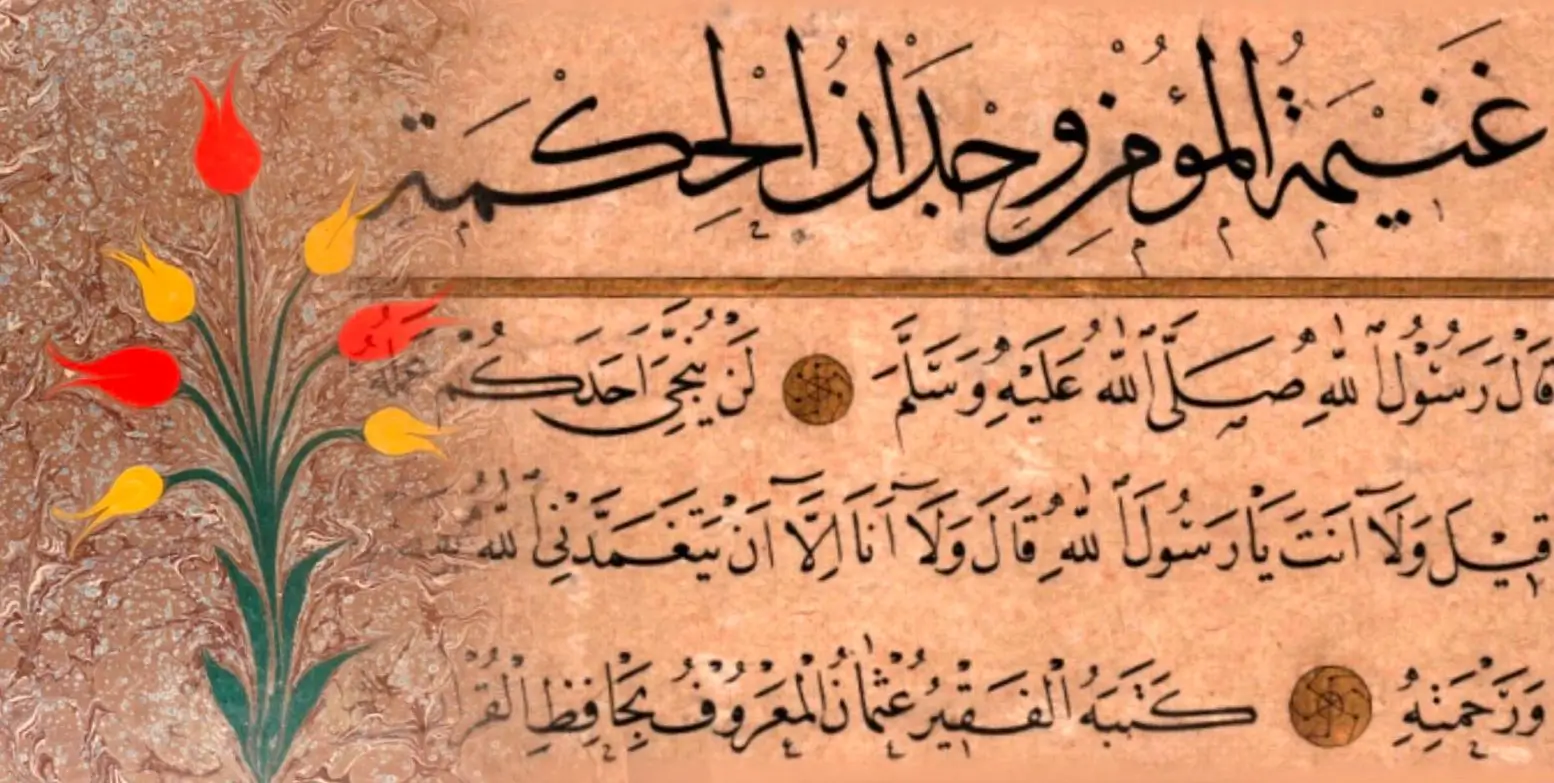 غَنيمَةُ المُؤْمِنِ وِجْدَانُ الْحِكْمَةِ
قَالَ رَسُولُ اللّٰهِ صَلَّى اللّٰهُ عَلَيْهِ وَسَلَّمَ لَنْ يُنْجِيَ اَحَدَكُمْ عَمَلُهُ
قِيْلَ وَلَا اَنْتَ يَا رَسُولَ اللّٰهِ قَالَ وَلَا اَنَا اِلَّا اَنْ يَتَغَمَّدَنِيَ اللّٰهُ
وَرَحْمَتِهِ كَتَبَهُ الْفَقِيْرُ عُثْمَانُ الْمَعْرُوْفُ بِحَافِظِ الْقُرْ